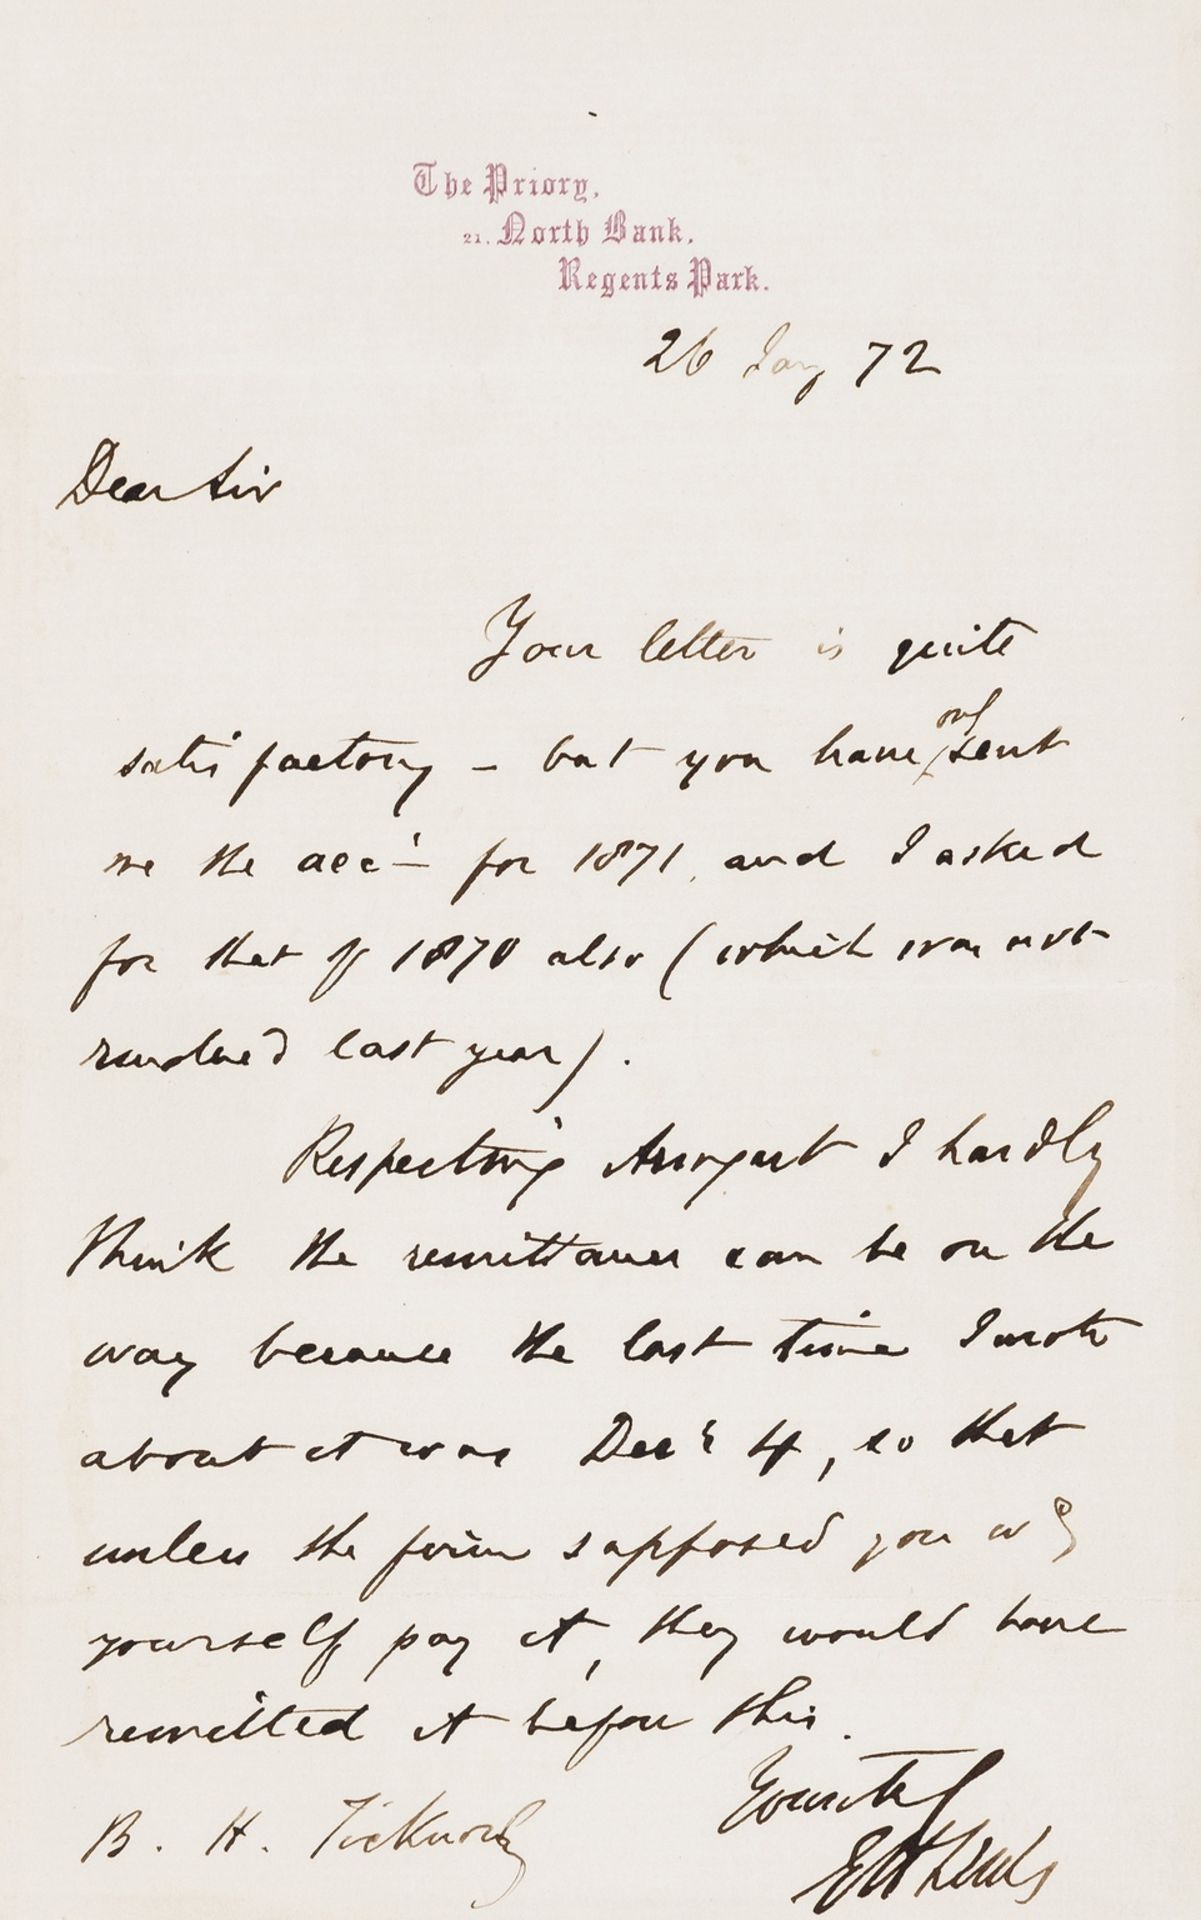 The Priory,
21. North Bank,
Regents Park.
26 Jany 72
Dear Sir
Your letter is quite
only
satisfactory – but you have sent
me the acct for 1871, and I asked
for that of 1870 also (which was not
rendered last year).
Respecting I hardly
think the remittance can be on the
way because the last time I wrote
about it was Decr 4, so that
unless the firm supposed you wd
yourself pay it, they would have
remitted it before this.
Yours truly
B. H. Ticknor